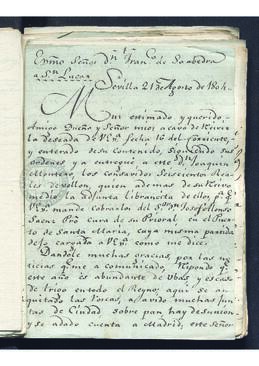 Exmo Señor dn Franco de Saabedra
a Sn Lucar
Sevilla 21 de Agosto de 1804.
Mui estimado y querido
Amigo Dueño y Señor mio; acavo de recivir
la deseada de VExa fecha 16 del corriente,
y enterado de su contenido, siguiendo sus
ordenes ya entregué a este dn Joaquin
Montero, los consavidos seiscientos Reales
de vellon, quien ademas de su Recivo
me dio la adjunta libranzita de ellos pa qe
VExa mande cobrarla del Sor dn Josef Alonso
Saenz Pro Cura de su Prioral en el Puerto
de Santa Maria, cuya misma partida
dejo cargada a VExa como me dice.
Dandole muchas gracias por las no
ticias qe me a comunicado, Respondo qe
este año es abundante de Ubas, y escaso
de trigo en todo el Reyno; aqui se an
quitado las Roscas, a avido muchas Jun
tas de Ciudad sobre pan, hay desunion
y se a dado cuenta a Madrid, este señor